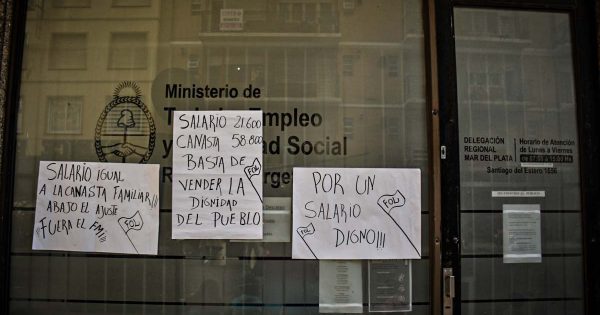 Ministerio de
Empleo
y
dad Social
DELEGACIÓN
REGIONAL
MAR DEL PLATA
Horario de Atención
de Lunes a Viernes
Santiago del Estero 1656
SALARIO IGUAL
A LA CANASTA FAMILIAR!!!
ABAJO EL AJUSTE
FUERA EL FMI!!!
FOL
SALARIO 21.600
CANASTA 58.800
BASTA DE
VENDER LA
DIGNIDAD
DEL PUEBLO
FOL
POR UN
SALARIO
DIGNO!!!
FOL
FOL